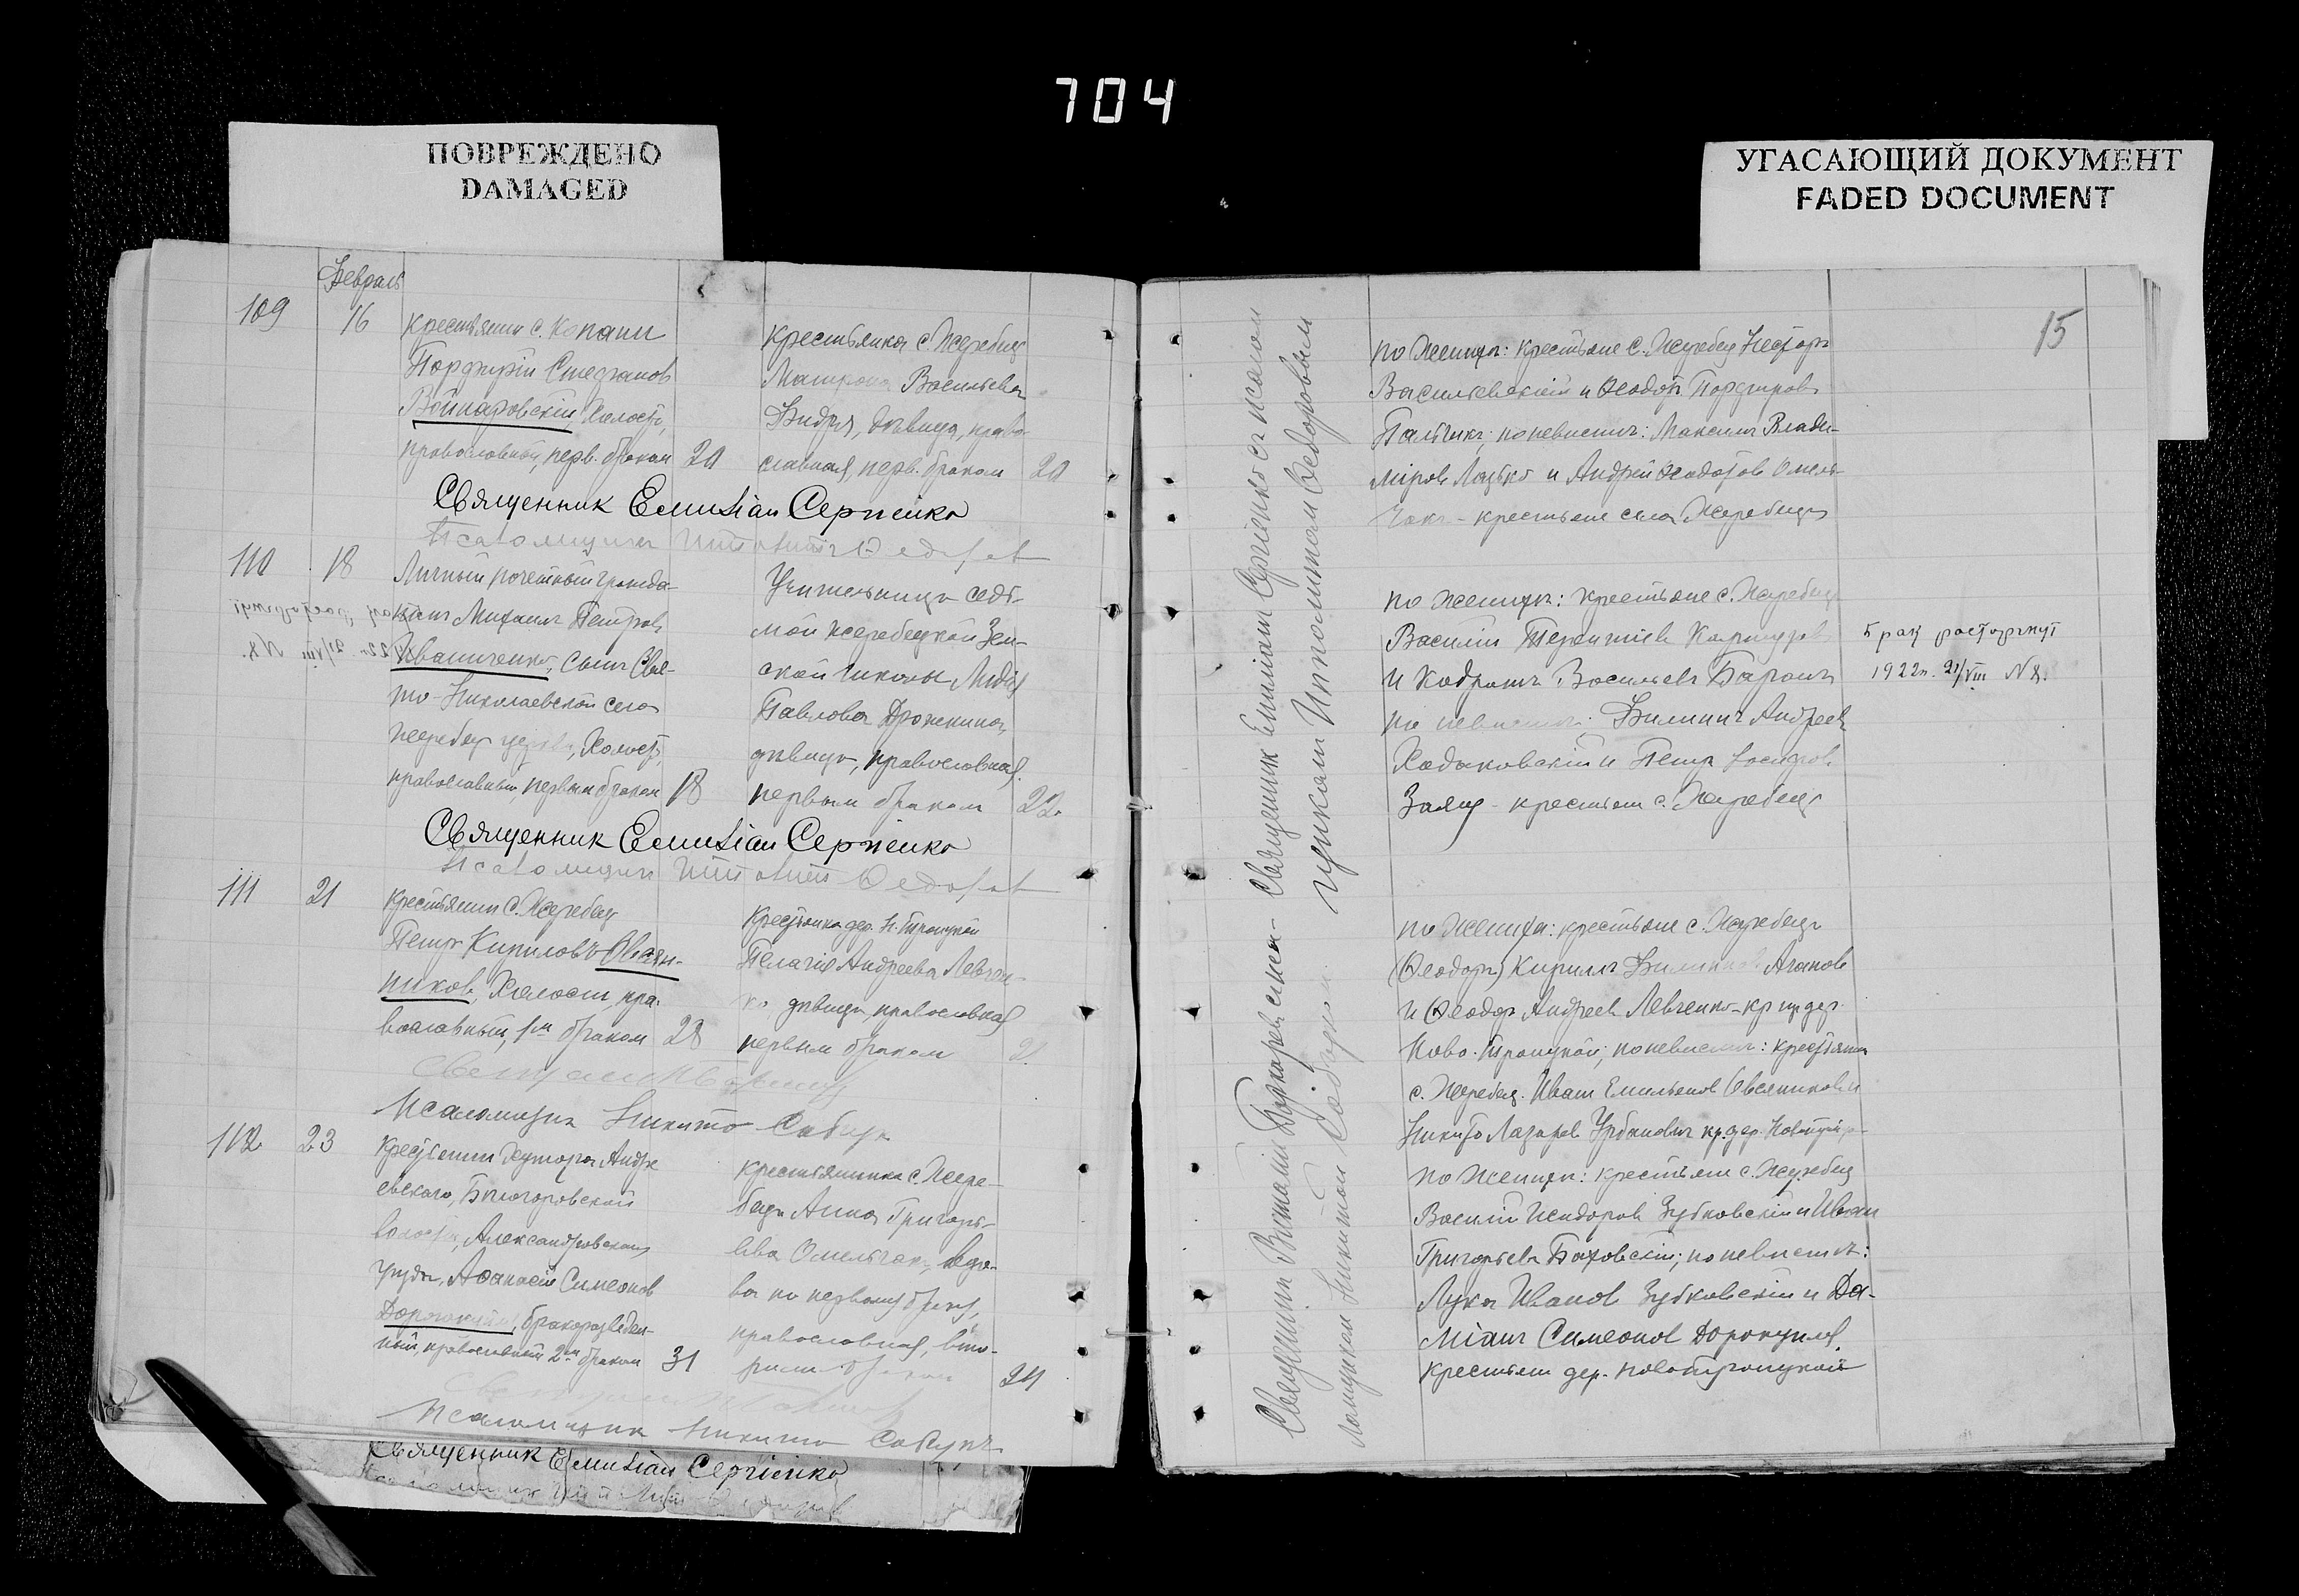 704
ПОВРЕЖДЕНО
DAMAGED
УГАСАЮЩИЙ ДОКУМЕНТ
FADED DOCUMENT
Февраль
109
16
Крестьянин с. Копани
Порфирій Стефанов
Войнаровскій, холостъ,
православный, перв. бракам
20
Крестьянка с. Жеребца
Матрона Васильева
Бидря, дѣвица, право-
славная, перв. браком
20
Священник Емиліан Сергіенко
Псаломщикъ Ипполитъ Федоров
110
18
Личный почетный гражда-
нинъ Михаилъ Петров
Иваниченко, сынъ Свя-
то-Николаевской села
Жеребца церкви, холостъ,
православный, первым браком
18
Учительница седь-
мой Жеребецкой Зем-
ской школы Лидія
Павлова Дрожжина,
дѣвица, православная,
первым браком
22
Священник Емиліан Сергіенко
Псаломщикъ Ипполитъ Федоров
111
21
Крестьянин с. Жеребца
Петръ Кирилловъ Овсян-
ников, холостъ, пра-
вославный, 1м браком
28
Крестьянка дер. Н. Троицкой
Пелагія Андреева Левчен-
ко, дѣвица, православная
первым браком
Псаломщик Никита
112
23
Крестьянин хутора Андре
евскаго,
волости, Александровскаго
уѣзда, Афанасій Симеонов
бракоразведен-
ный, православный 2м браком
31
Крестьянка с. Жере-
бца Анна Григорь-
ева Омельчак, вдо-
ва по первому браку,
православная, вто-
рым браком
24
Псаломщик Никита
Священник Емиліан Сергіенко
Священник Емиліан Сергіенко с псалом
щиком Ипполитом Федоровым
15
по женихѣ: крестьяне с. Жеребца Нестор
Васильевскій и Феодор Порфиров
Пальчикъ; по невѣстѣ: Максимъ Влади-
міров Лазько и Андрей Феодотов Омель-
чакъ - крестьяне села Жеребца
по женихѣ: крестьяне с. Жеребца
Василій Терентіев
и Кодратъ Васильев Баранъ
по невѣстѣ: Филиппъ Андреев
Ходаковскій и Петръ Іосифов
Заяц - крестьяне с. Жеребца
Брак расторгнут
1922 г. 21/VIII N 8.
по женихѣ: крестьяне с. Жеребца
(Феодоръ) Кирилъ Филиппов Аганов
и Феодор Андреев Левченко - кр-не дер.
Ново-Троицкой; по невѣстѣ: крестьяне
с. Жеребца Иван Емельянов Овсянников и
Никита Лазарев Урбанович кр. дер. Новотроиц-
по женихѣ: крестьяне с. Жеребца
Василій Исидоров Зубковскій и Иван
Григорьев Баховскій; по невѣстѣ:
Лука Иванов Зубковскій и Да-
міанъ Симеонов
крестьяне дер. Новотроицкой